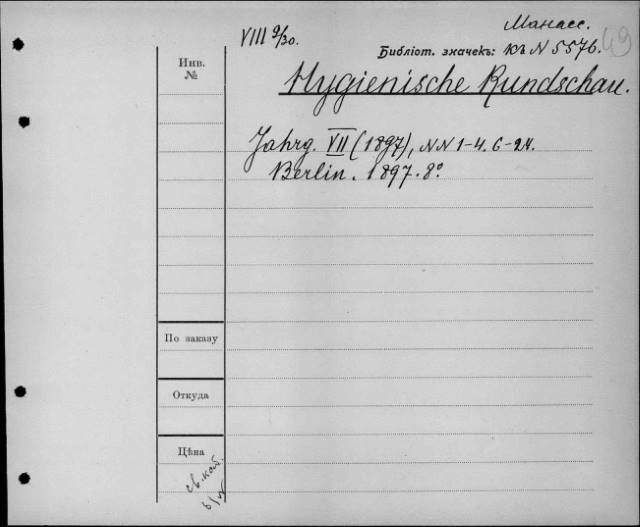 Манасс.
VIII 9/30.
Библіот. значекъ: къ N 5576. 49
Инв.
№
Hygienische Rundschau.
Jahrg. VII (1897), NN 1-4. 6-24.
Berlin. 1897. 8°.
По заказу
Откуда
Цѣна
св. кат.